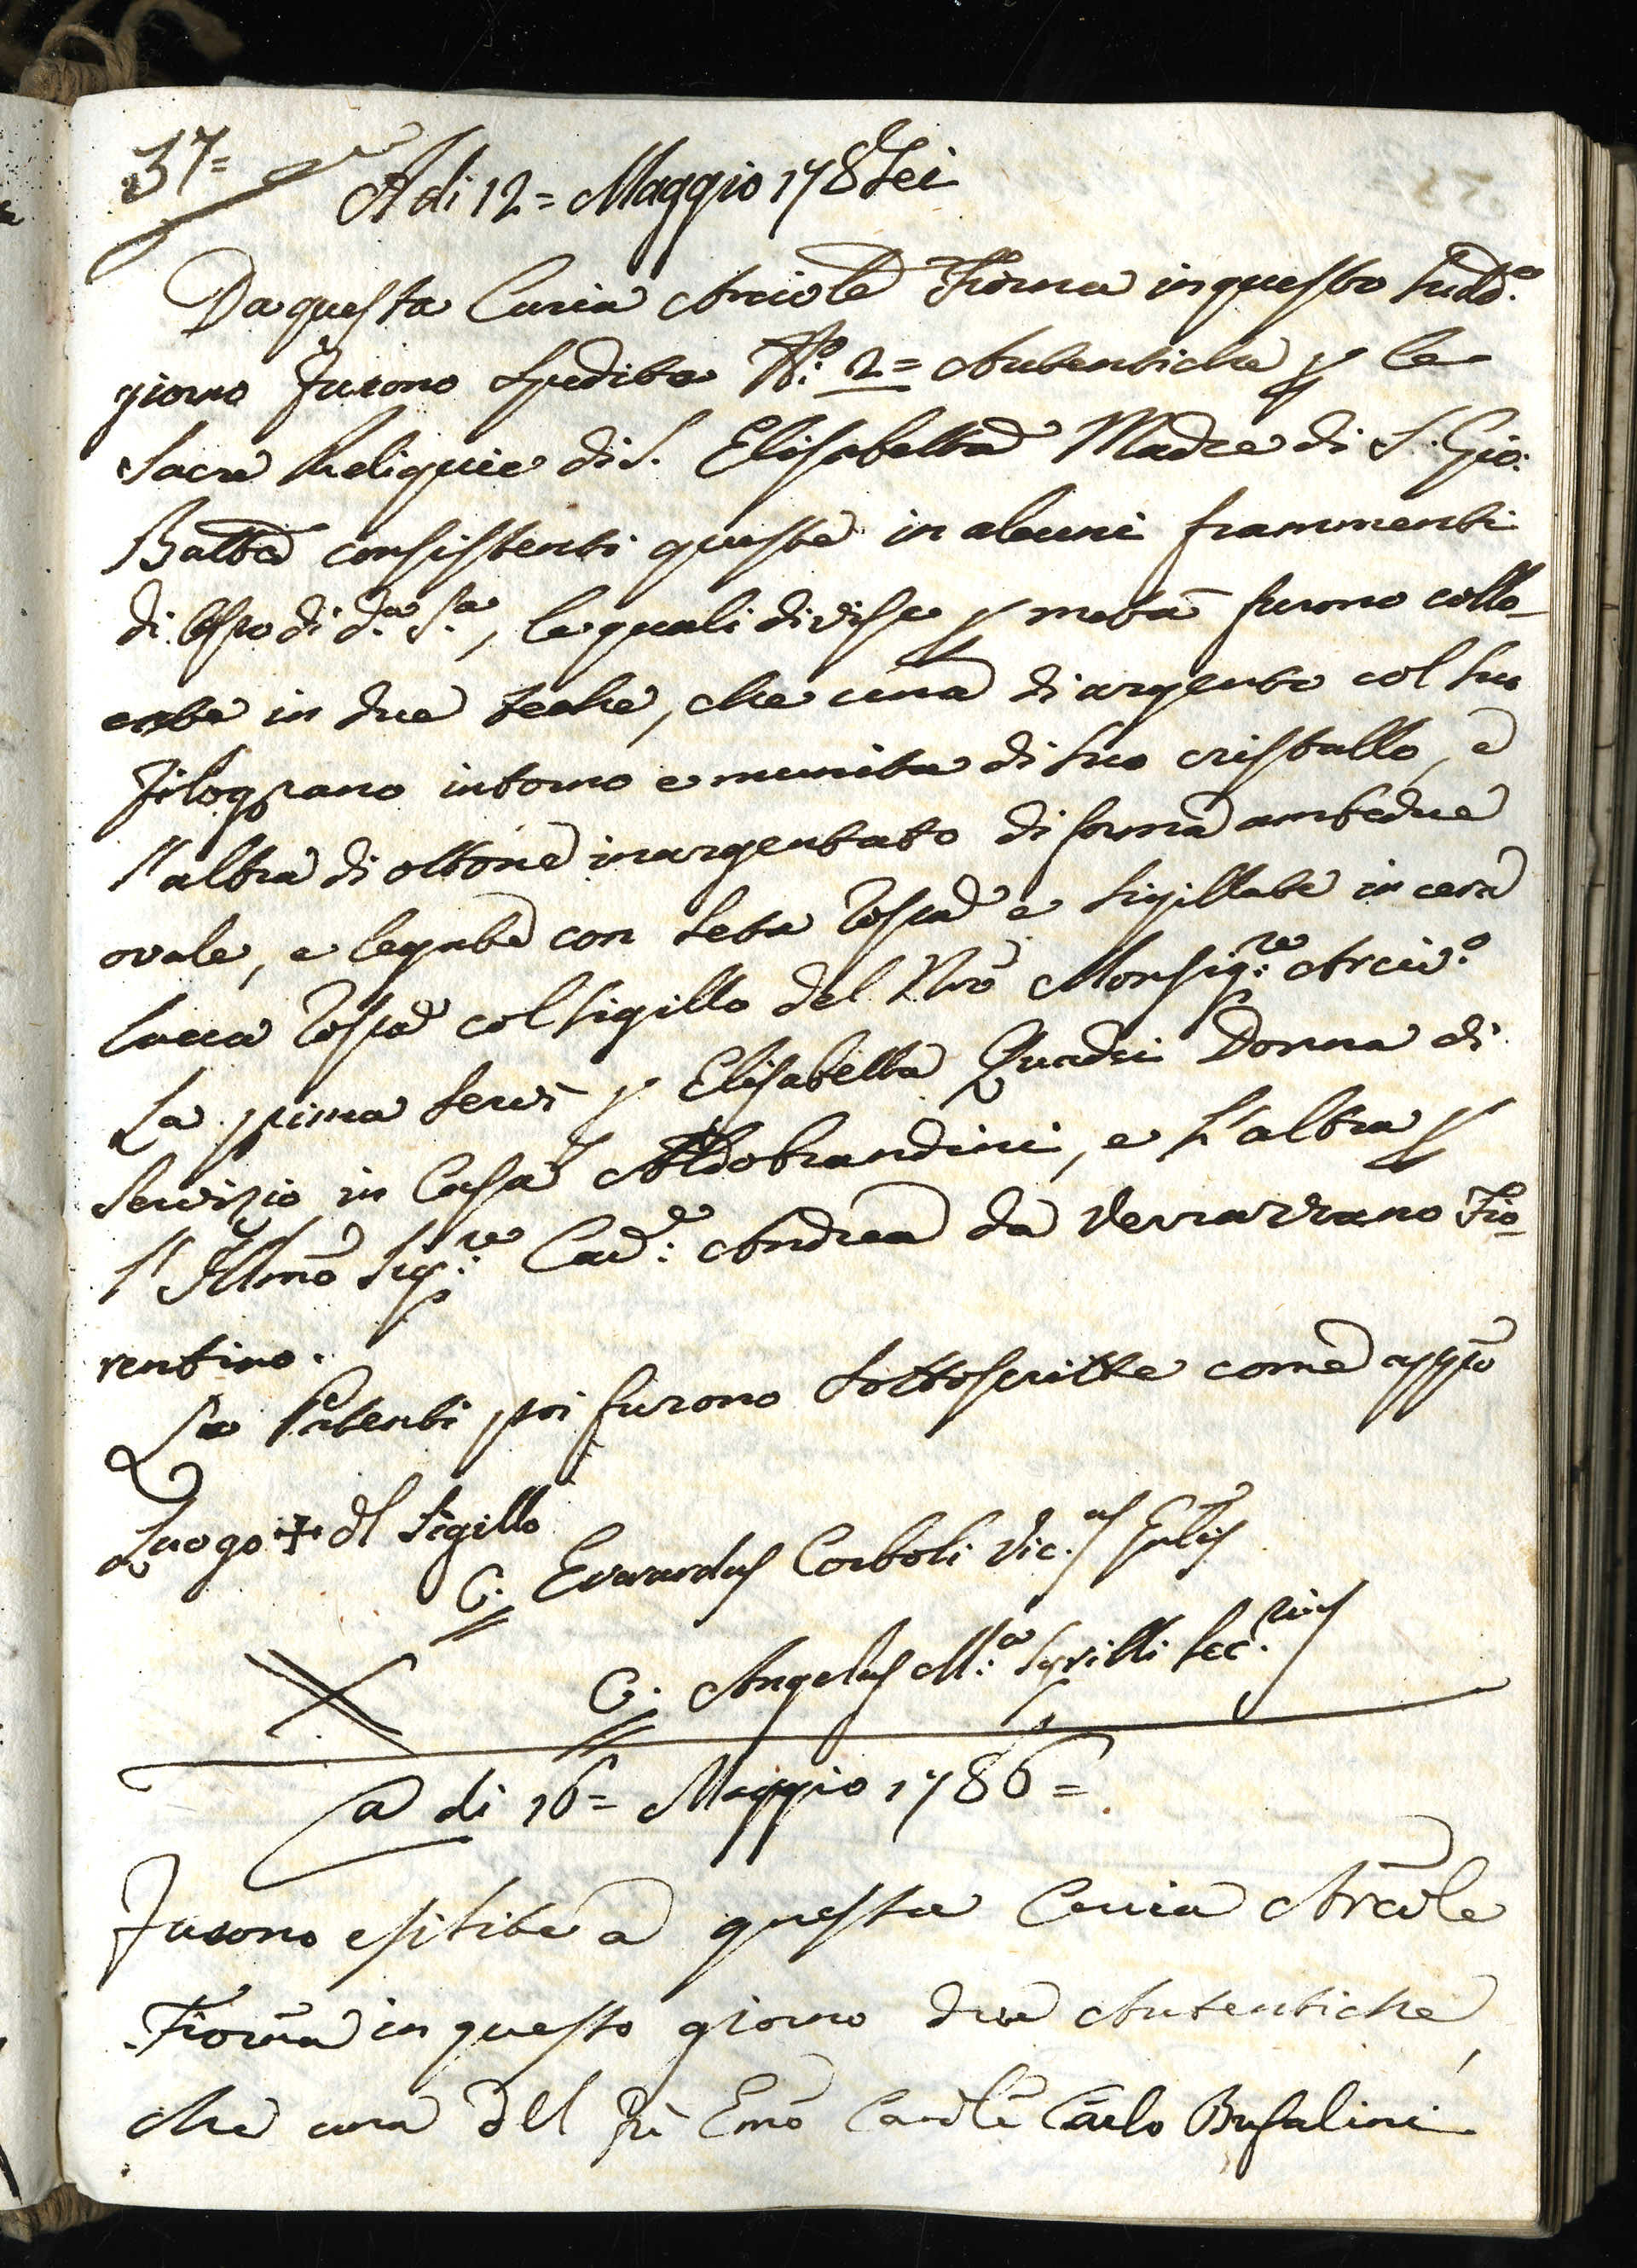 37=
A di 12= Maggio 178Sei
Da questa Curia Arcivle Fiorna in questo Sudd.o
giorno furono Spedite N.o 2= Autentiche p le
Sacre Reliquie di S. Elisabetta Madre di S. Gio:
Batta consistenti queste in alcuni frammenti
di Osso di d.a S.a, le quali divise p metà furono collo-
cate in due teche, che una di argento col suo
filograno intorno e munita di suo cristallo, e
l'altra di ottone inargentato di forma ambedue
ovale, e legate con Seta rossa e sigillate in cera
lacca rossa col sigillo del Nro Monsig:re Arciv:o
La prima servì p Elisabetta Quadri Donna di
Servizio in Casa Aldobrandini, e l'altra p
l'Illmo Sig:re Cav:e Andrea da Verrazzano Fio-
rentino.
Le Patenti poi furono Sottoscritte come app̃o
Luogo + dl Sigillo
C. Evrardus Corboli Vic.us Gnlis
C. Angelus M:a Sec.rius
a di 16= Maggio 1786=
Furono esibite a questa Curia Arcivle
Fiorna in questo giorno due Autentiche,
che una dell Emo Cardle Carlo Bufalini